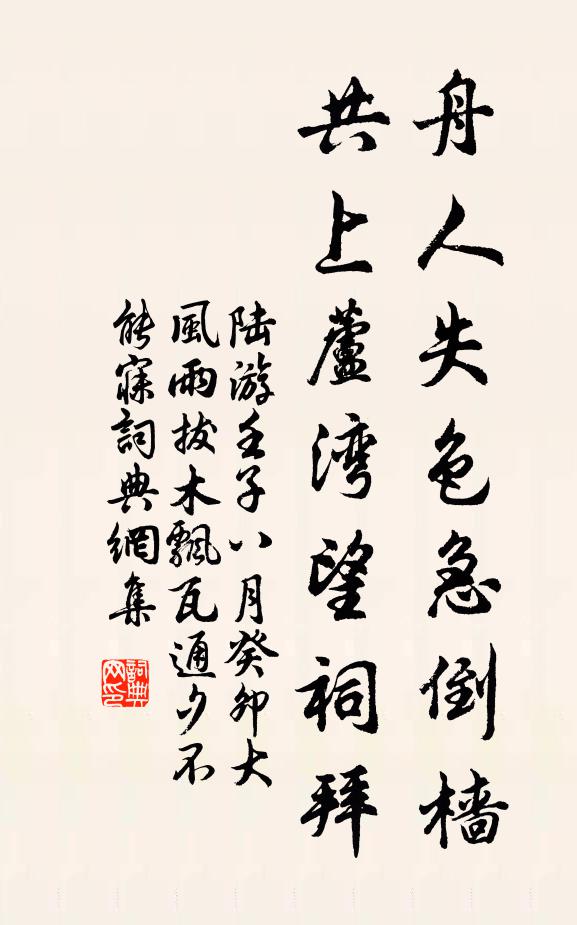 舟人失色急倒檣
共上蘆湾望祠拜
陆游壬子八月癸卯大
風雨拔木飄瓦通夕不
能寐詞典網集
詞典网印